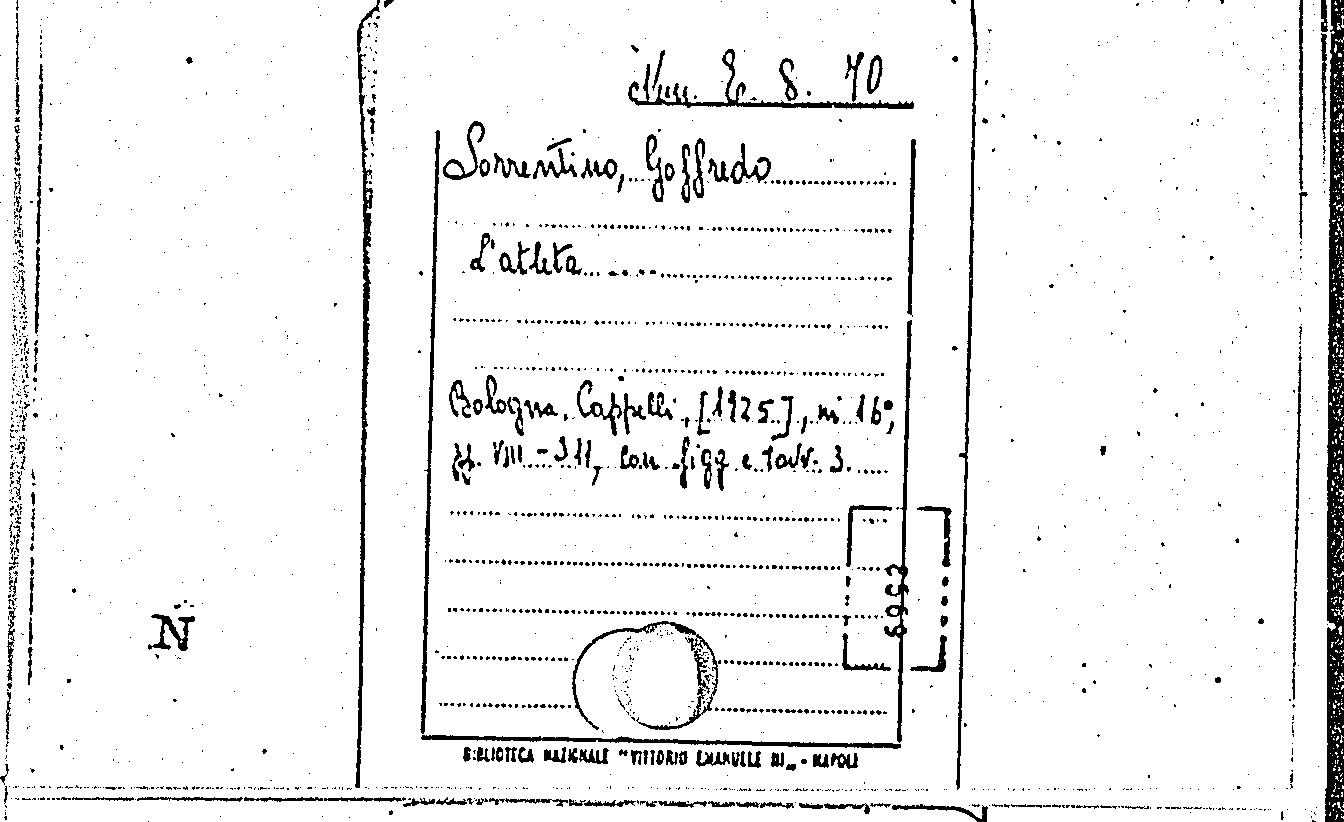 Nun. E. 8. 70
Sorrentino, Goffredo
L'atleta.....
Bologna, Cappelli, [1925], in 16°,
pp. VIII - 311, con figg e tavv. 3.
6993
N
BIBLIOTECA NAZIONALE "VITTORIO EMANUELE III„ - NAPOLI